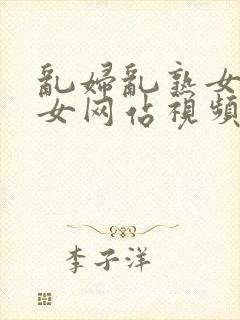 亂婦亂熟女
女网佔視頻
李子洋